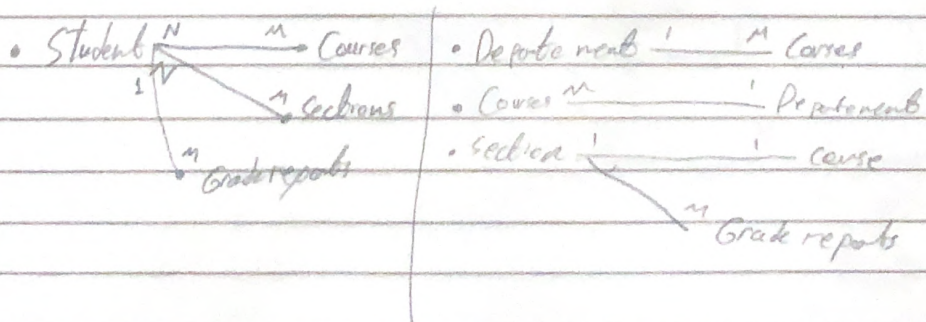 • Student N M Courses
M Sections
1 N
M Grade reports
• Departement 1 M Courses
• Courses M 1 Departement
• Section 1 1 Course
M Grade reports